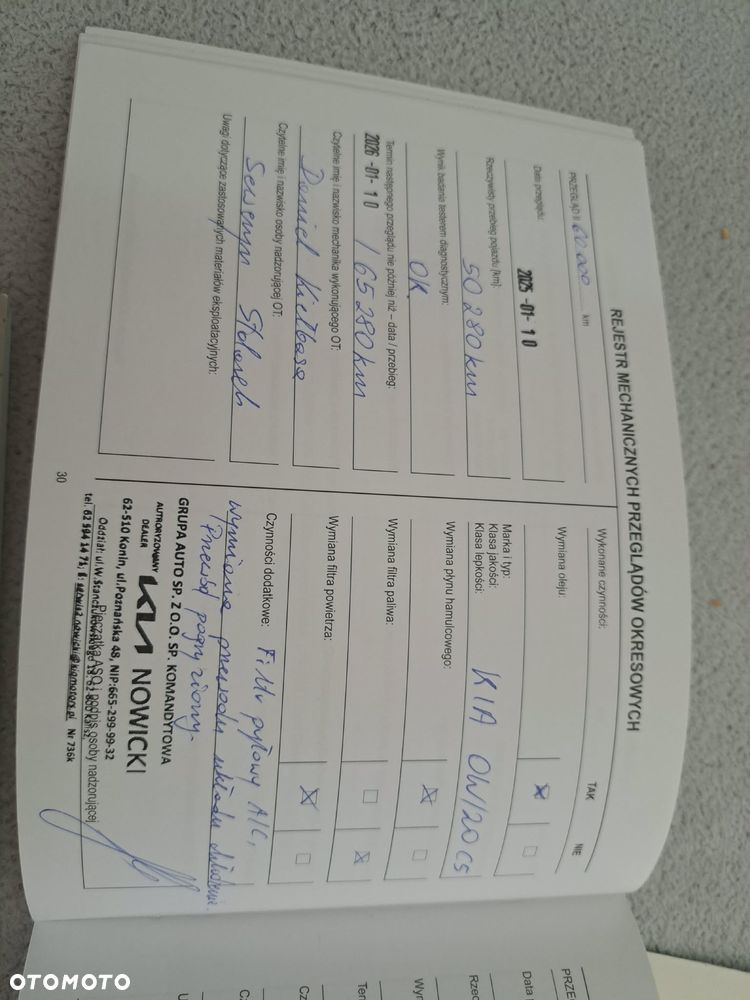 REJESTR MECHANICZNYCH PRZEGLĄDÓW OKRESOWYCH
PRZEGLĄD II 60.000 km
Data przeglądu:
2025 -01- 10
Rzeczywisty przebieg pojazdu [km]:
50 280 km
Wynik badania testerem diagnostycznym:
OK.
Termin następnego przeglądu nie później niż – data / przebieg:
2026 -01- 10 / 65 280 km
Czytelne imię i nazwisko mechanika wykonującego OT:
Daniel Kiełbasa
Czytelne imię i nazwisko osoby nadzorującej OT:
Seweryn
Uwagi dotyczące zastosowanych materiałów eksploatacyjnych:
30
Wykonane czynności: TAK NIE
Wymiana oleju:
Marka i typ:
Klasa jakości:
Klasa lepkości:
KIA 0W/20 C5
Wymiana płynu hamulcowego:
Wymiana filtra paliwa:
Wymiana filtra powietrza:
Czynności dodatkowe: Filtr pyłowy A/C,
wymiana przewodu układu
Przewód pogryziony.
GRUPA AUTO SP. Z O.O. SP. KOMANDYTOWA
AUTORYZOWANY
DEALER
KIA NOWICKI
62-510 Konin, ul.Poznańska 48, NIP:665-299-99-32
Oddział: ul.W.
Pieczątka ASO i podpis osoby nadzorującej
Nr 736k
PRZE
Data
Rzec
Wyn
Ter
Cz
Cz
U
OTOMOTO